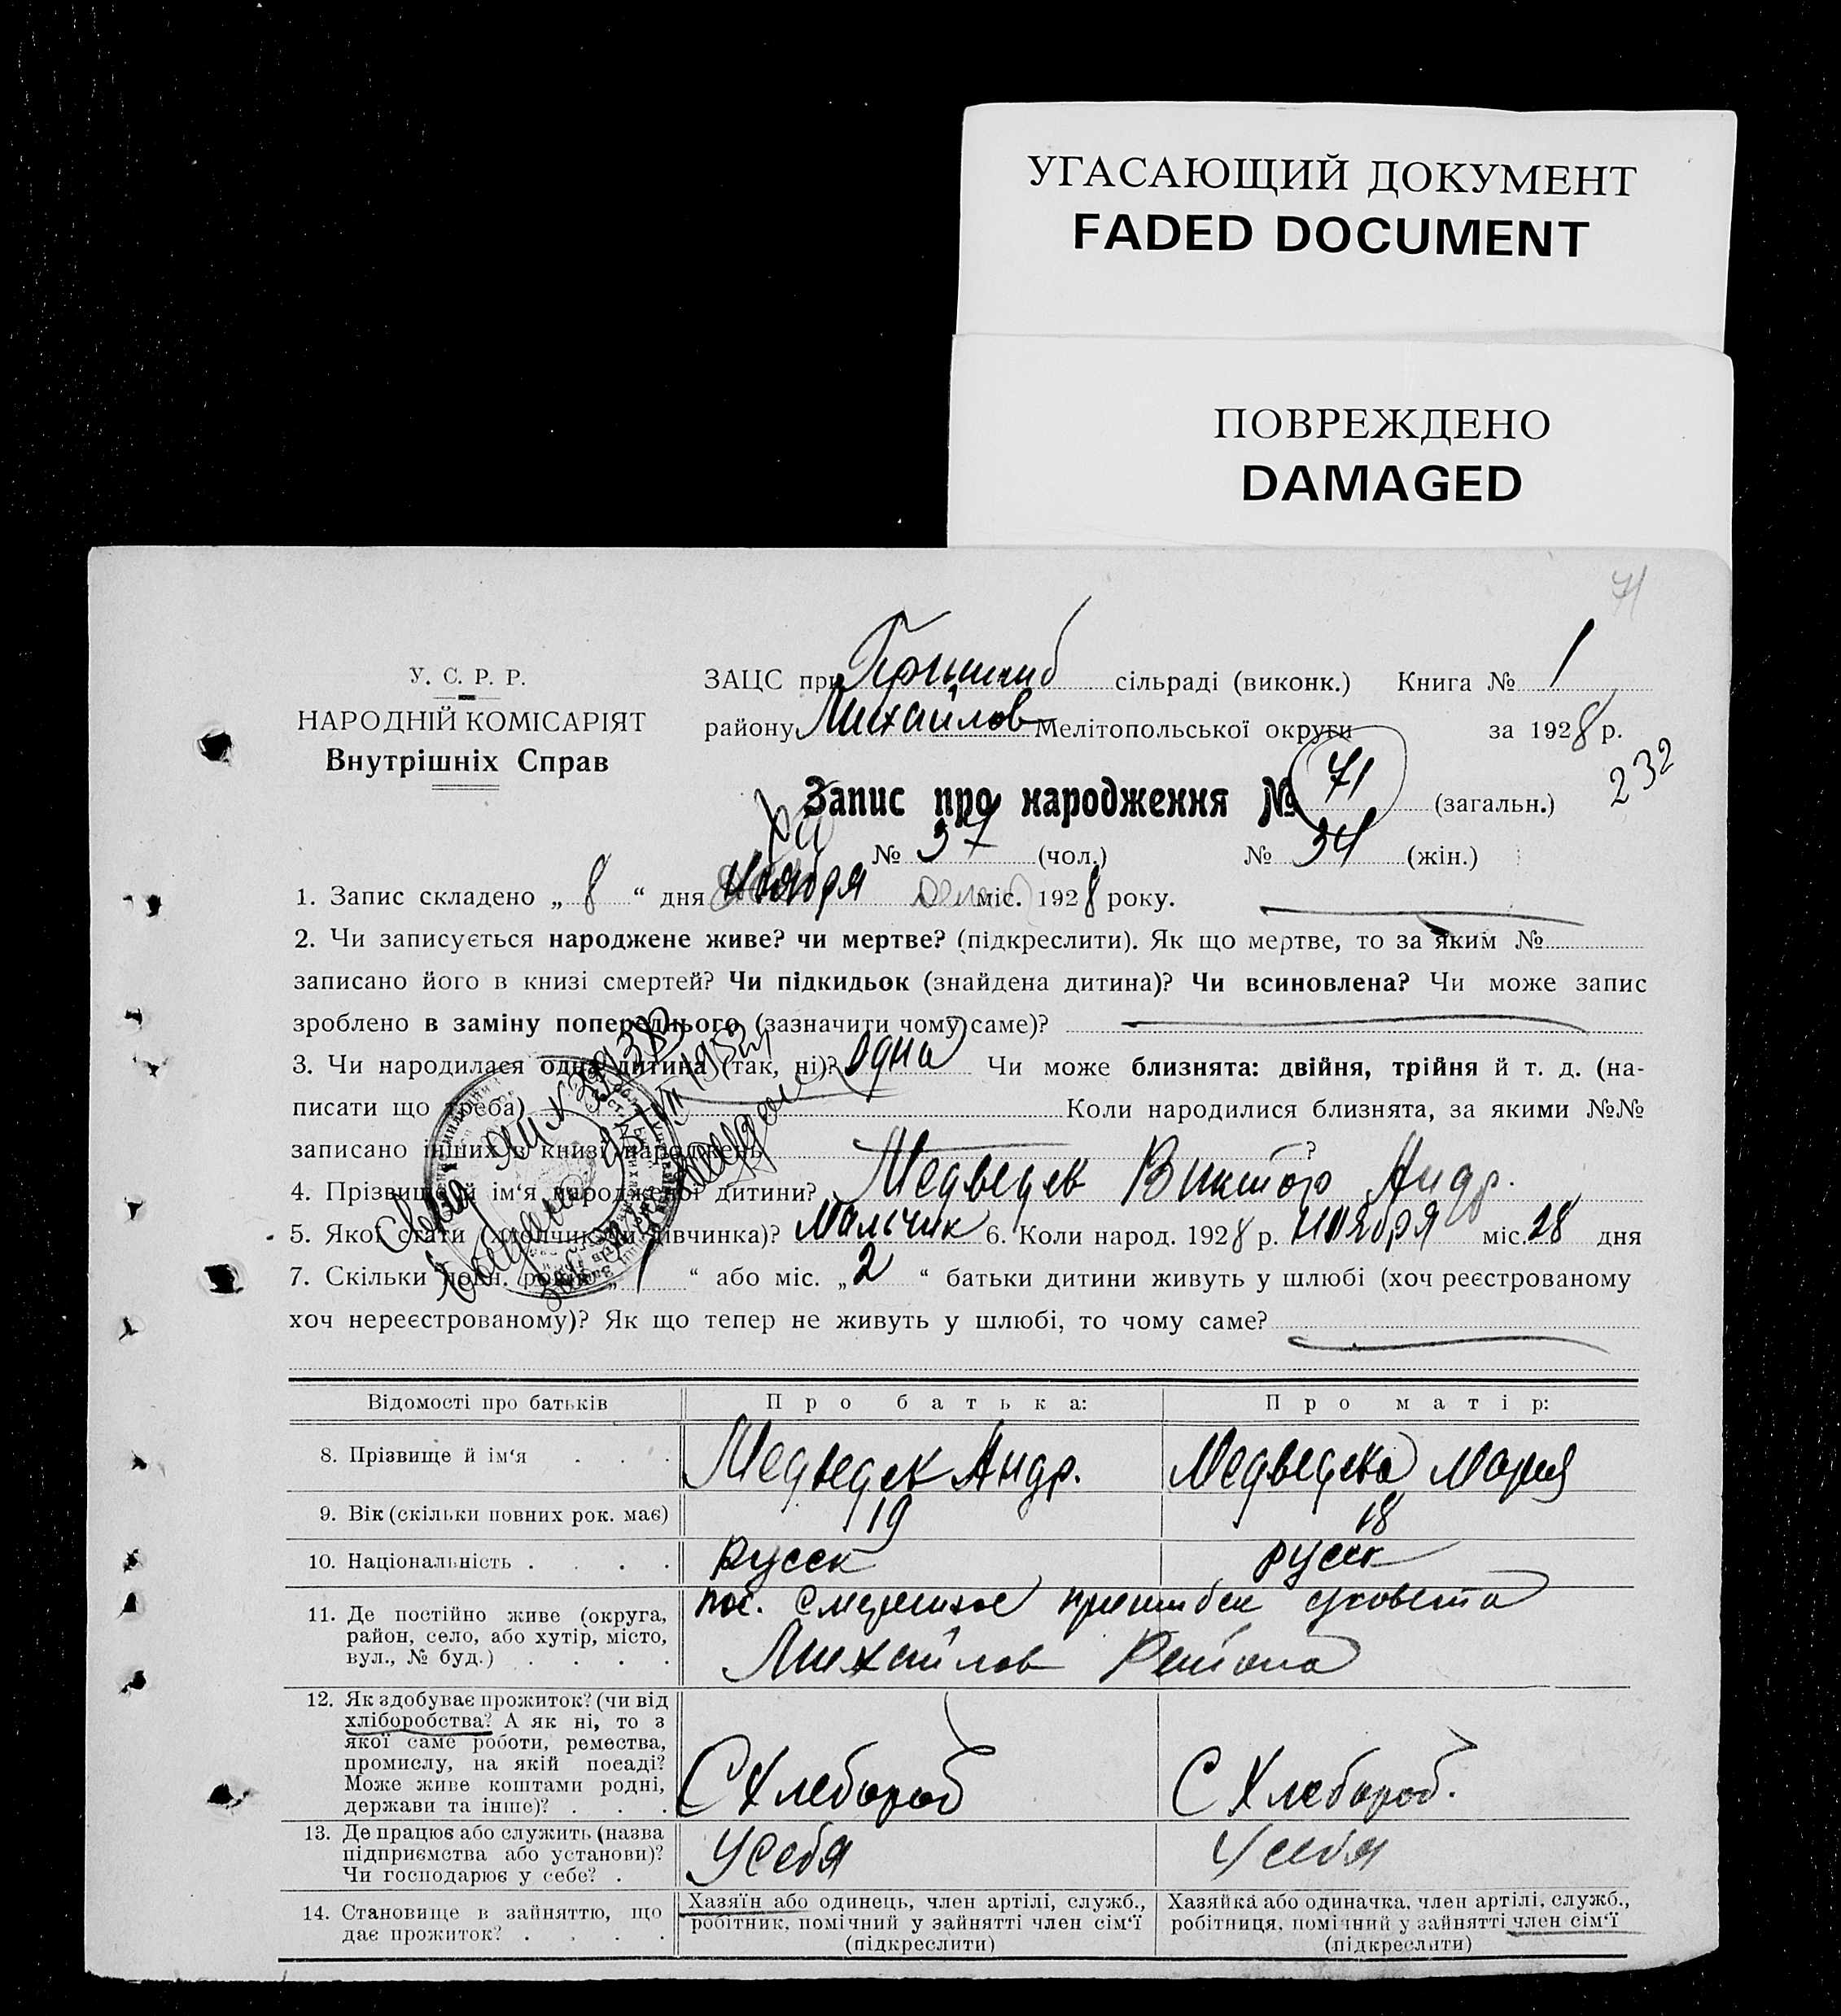 УГАСАЮЩИЙ ДОКУМЕНТ
FADED DOCUMENT
ПОВРЕЖДЕНО
DAMAGED
71
У. С. Р. Р.
НАРОДНІЙ КОМІСАРІЯТ
Внутрішніх Справ
ЗАЦС при Пришиб сільраді (виконк.) Книга № 1
району Михайлов Мелітопольської округи за 1928 р.
232
Запис про народження № 71 (загальн.)
№ 37 (чол.) № 34 (жін.)
1. Запис складено „ 8 “ дня міс. 1928 року.
2. Чи записується народжене живе? чи мертве? (підкреслити). Як що мертве, то за яким №
записано його в книзі смертей? Чи підкидьок (знайдена дитина)? Чи всиновлена? Чи може запис
зроблено в заміну попереднього (зазначити чому саме)?
3. Чи народилася одна дитина (так, ні)? одна Чи може близнята: двійня, трійня й т. д. (на-
писати що треба) Коли народилися близнята, за якими №№
записано інших в книзі народжень ?
4. Прізвище й ім‘я народженої дитини? Медведев Виктор Андр.
5. Якої стати (хлопчик чи дівчинка)? Мальчик 6. Коли народ. 1928 р. ноября міс. 28 дня
7. Скільки повн. років „ 1 “ або міс. „ 2 “ батьки дитини живуть у шлюбі (хоч реєстрованому
хоч нереєстрованому)? Як що тепер не живуть у шлюбі, то чому саме?
Відомості про батьків Про батька: Про матір:
8. Прізвище й ім‘я . . . Медведев Андр. Медведева Мария
9. Вік (скільки повних рок. має) 19 18
10. Національність . . . . русск русск
11. Де постійно живе (округа,
район, село, або хутір, місто,
вул., № буд.) . . . .
пос. пришибск сковета
Михайлов Района
12. Як здобуває прожиток? (чи від
хліборобства? А як ні, то з
якої саме роботи, ремества,
промислу, на якій посаді?
Може живе коштами родні,
держави та інше)? . . .
С Хлебороб С Хлебороб.
13. Де працює або служить (назва
підприємства або установи)?
Чи господарює у себе? .
У себя У себя
14. Становище в зайняттю, що
дає прожиток? . . . .
Хазяїн або одинець, член артілі, служб.,
робітник, помічний у зайнятті член сім‘ї
(підкреслити)
Хазяйка або одиначка, член артілі, служб.,
робітниця, помічний у зайнятті член сім‘ї
(підкреслити)